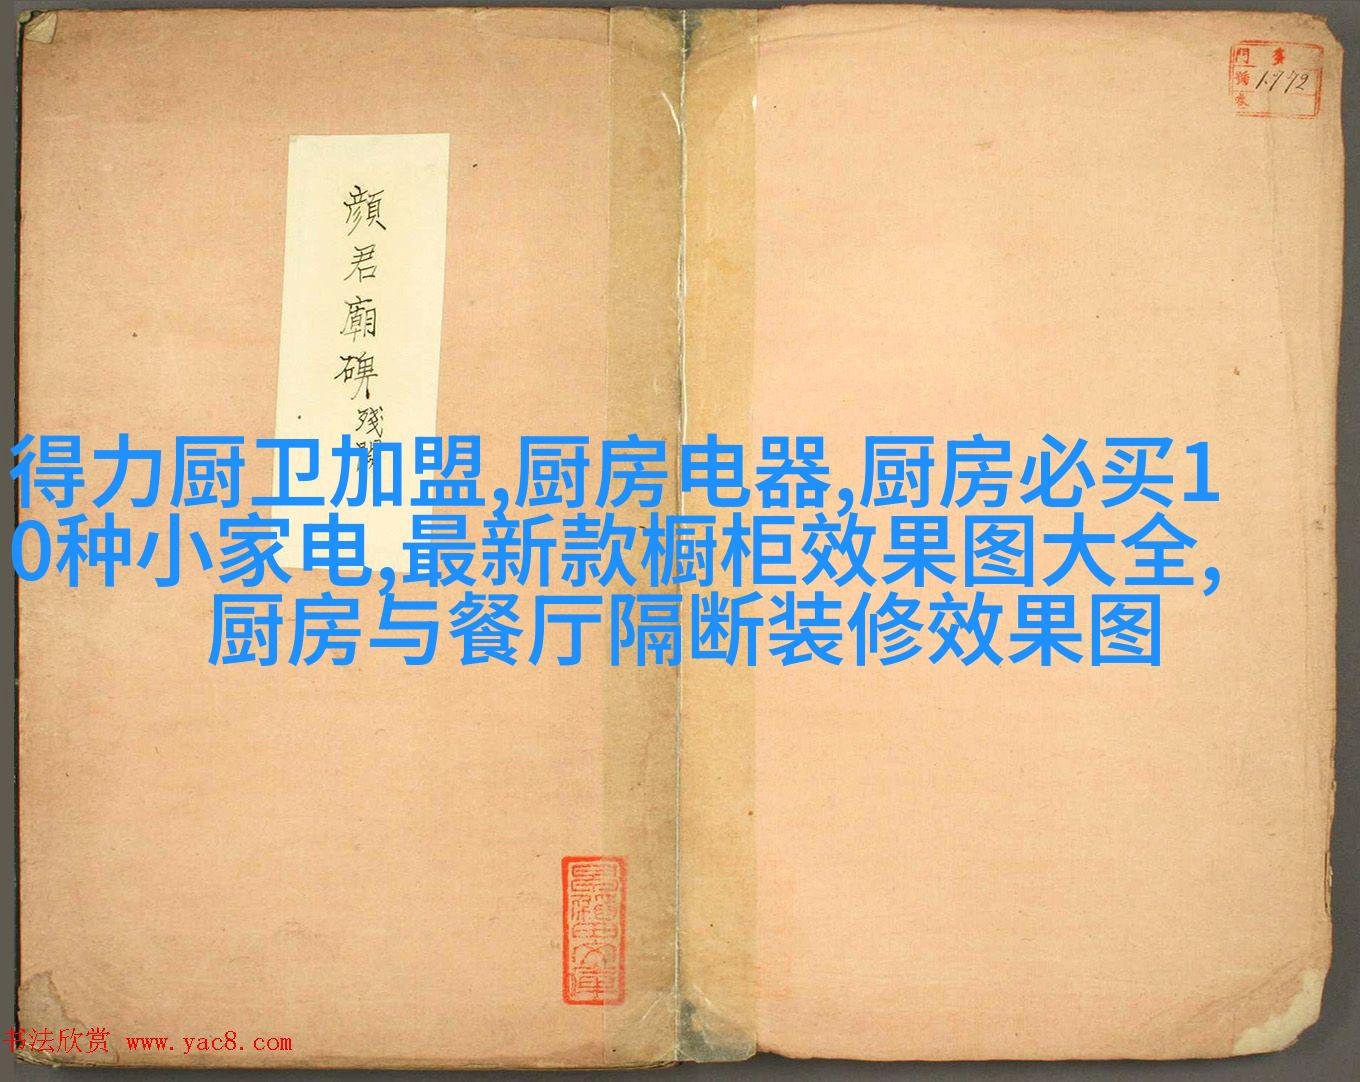 門 藁
號 1772
顔君廟碑殘闕
得力厨卫加盟,厨房电器,厨房必买1
0种小家电,最新款橱柜效果图大全,
厨房与餐厅隔断装修效果图
书法欣赏 www.yac8.com